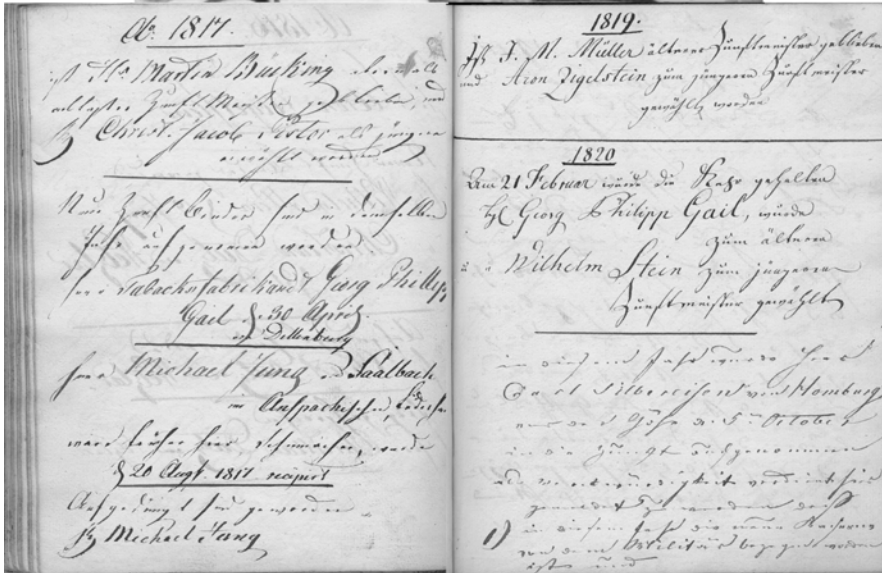 Ao. 1817.
ist Hr. Martin Bücking abermals
Zunft Meister geblieben, und
Christ. Jacob Pistor als jüngerer
erwählt worden
Neue Zunft Brüder sind in demselben
Jahr aufgenommen worden
Herr Tabacksfabrikandt Georg Philipp
Gail d. 30 April
in Dillenburg
Herr Michael Jung aus Saalbach
im Anspachischen,
ware früher hier, wurde
d 20 Augst. 1817 recipirt
sind geworden
Michael Jung
1819.
Ist J. M. Müller älterer Zunftmeister geblieben
und Aron Zigelstein zum jüngeren Zunftmeister
gewählt worden
1820
Am 21 Februar wurde die gehalten
Georg Philipp Gail, wurde
zum ältern
Wilhelm Stein zum jüngeren
Zunftmeister gewählt
in diesem Jahr wurde Herr
Carl Silbereisen von Homburg
vor der Höhe d. 5n October
in die Zunft aufgenommen
als Merkwürdigkeit verdient hier
zu werden daß
1) in diesem Jahr die neue Kaserne
von dem Militär bezogen worden
ist und